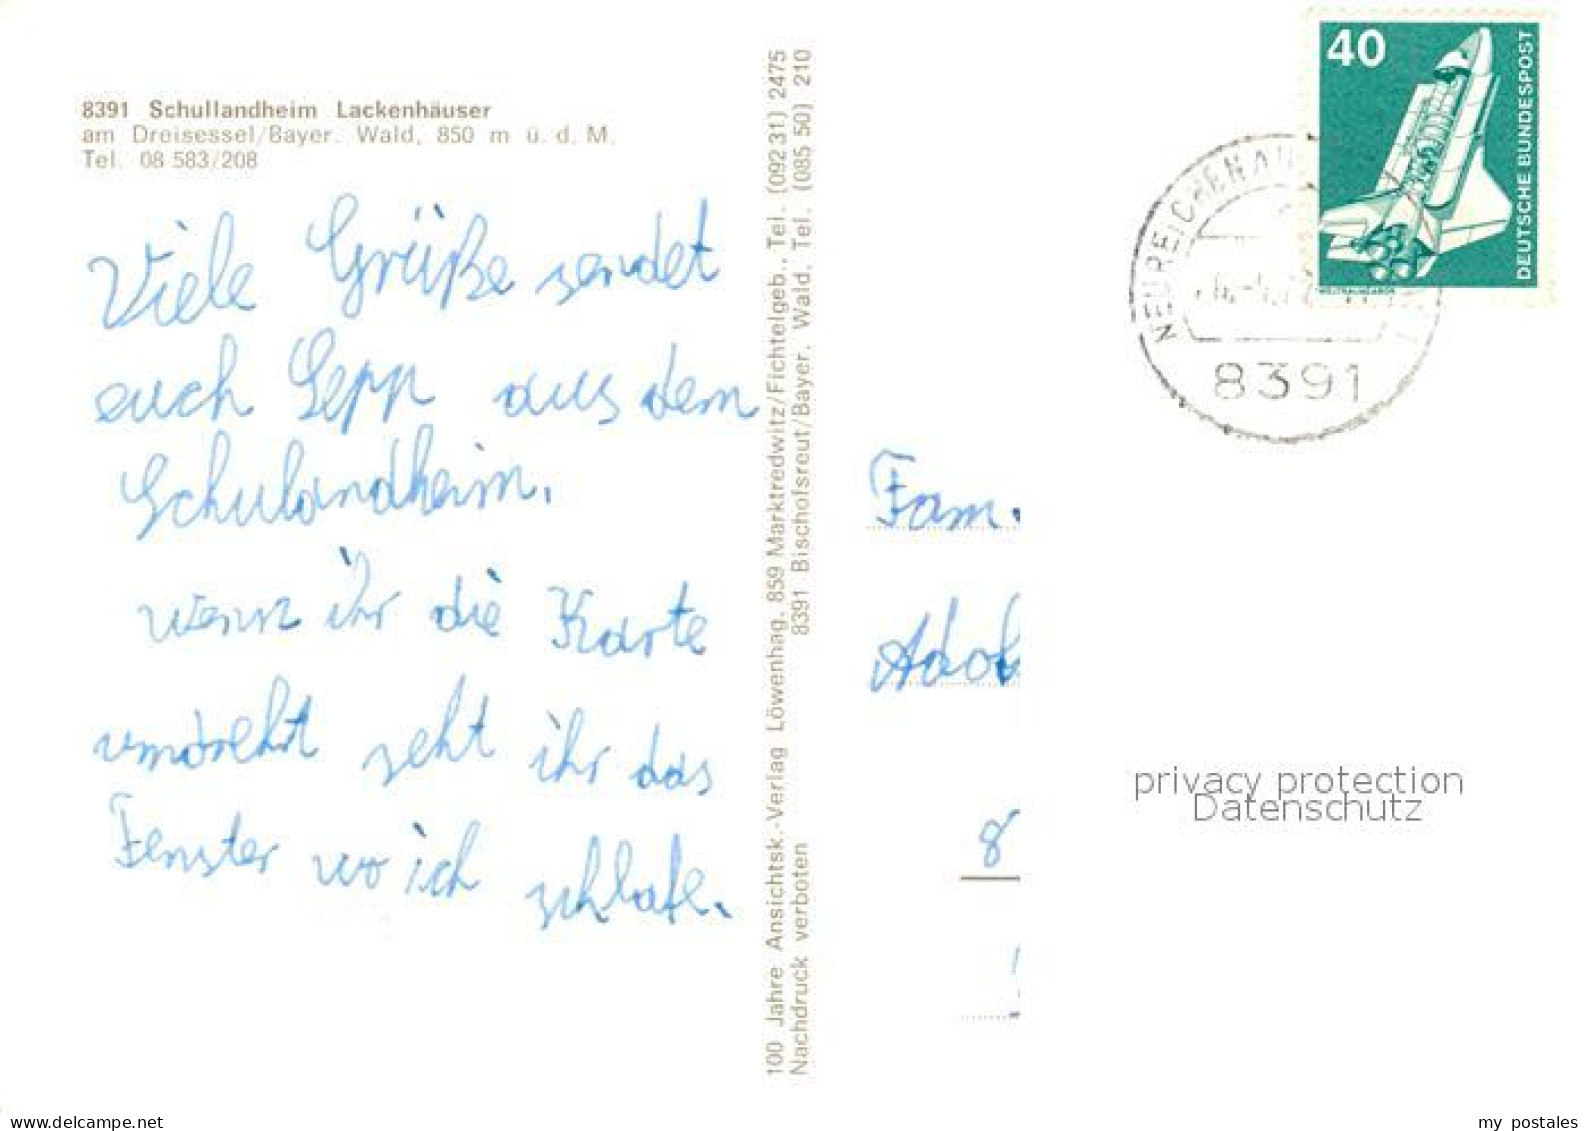 8391 Schullandheim Lackenhäuser
am Dreisessel/Bayer. Wald, 850 m ü. d. M.
Tel. 08 583/208
Viele Grüße sendet
euch Sepp aus dem
Schulandheim.
wenn ihr die Karte
umdreht seht ihr das
Fenster wo ich schlafe.
100 Jahre Ansichtsk.-Verlag Löwenhag, 859 Marktredwitz/Fichtelgeb., Tel. (092 31) 2475
Nachdruck verboten 8391 Bischofsreut/Bayer. Wald, Tel. (085 50) 210
40
DEUTSCHE BUNDESPOST
WELTRAUMLABOR
NEUREICHENAU
8391
Fam.
8
privacy protection
Datenschutz
www.delcampe.net
my_postales